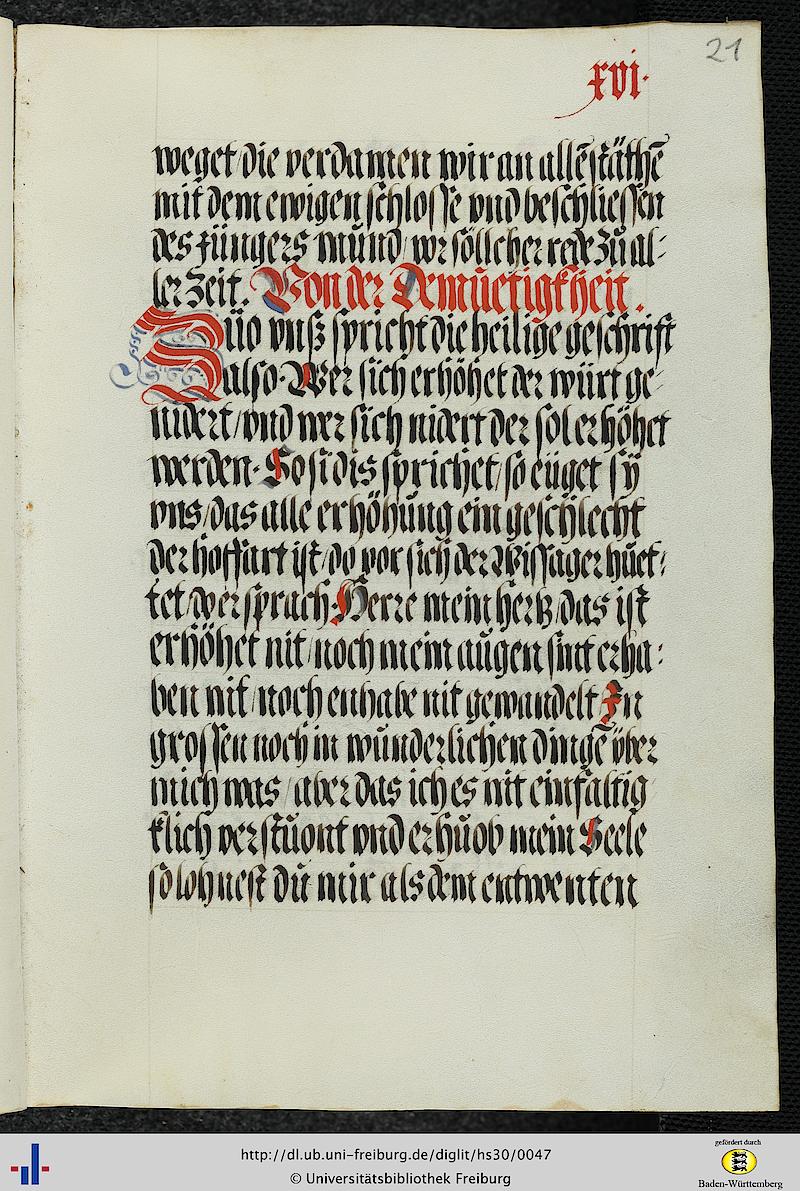 21
xvi·
weget/die verdam̄en wir an allē stäthē
mit dem ewigen schlosse vnd beschliessen
des züngers mund/wr söllcher rede zů al-
ler Zeit. Von der Demuetigkheit.
Zůo vnß spricht die heilige geschrift
also· Wer sich erhöhet der würt ge-
nidert/vnd wer sich nidert der sol erhöhet
werden· So si dis sprichet/so eüget sÿ
vns/das alle erhöhung ein geschlecht
der hoffart ist/do vor sich der Wissager hüet-
tet/wer sprach·Herre mein hertz/das ist
erhöhet nit/noch mein augen sint erha-
ben nit/noch enhabe nit gewandelt In
grossen noch in wunderlichen dingē über
mich was/aber das ich es nit einfaltig
klich verstůont vnd erhůob mein Seele
so lohnest du mir als dem entwenten
http://dl.ub.uni-freiburg.de/diglit/hs30/0047
© Universitätsbibliothek Freiburg
gefördert durch
Baden-Württemberg